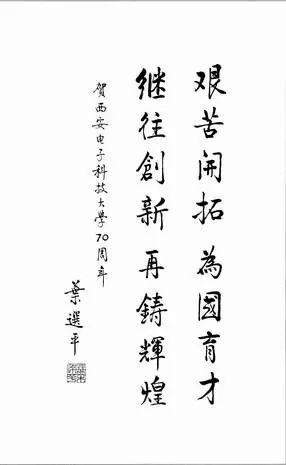 艰苦開拓 為國育才
继往創新 再鑄輝煌
賀西安电子科技大學70周年
葉選平